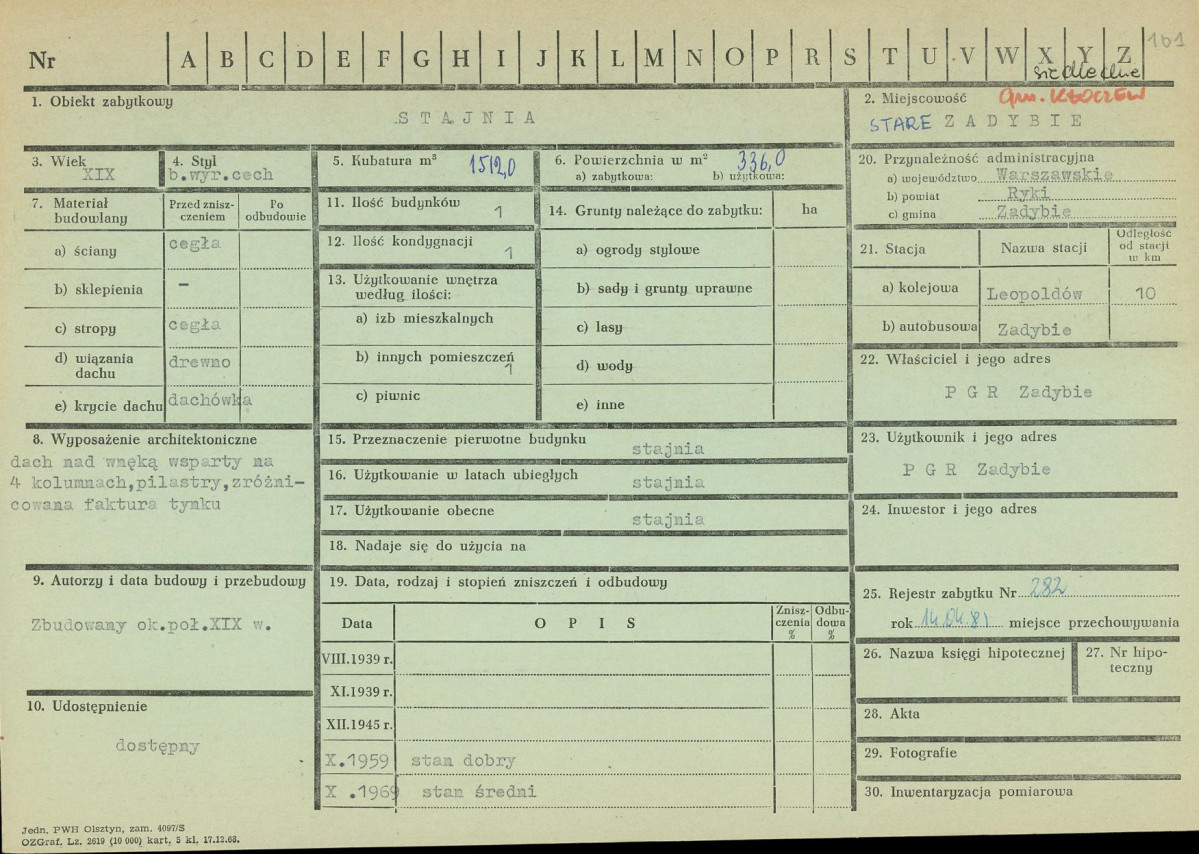 Nr A B C D E F G H I J K L M N O P R S T U V W X Y Z 161
siedleckie
1. Obiekt zabytkowy
STAJNIA
2. Miejscowość gm. KŁOCZEW
STARE ZADYBIE
3. Wiek
XIX
4. Styl
b.wyr.cech
5. Kubatura m³ 1512,0
6. Powierzchnia w m² 336,0
a) zabytkowa: b) użytkowa:
7. Materiał budowlany
Przed zniszczeniem
Po odbudowie
a) ściany cegła
b) sklepienia –
c) stropy cegła
d) wiązania dachu drewno
e) krycie dachu dachówka
8. Wyposażenie architektoniczne
dach nad wnęką wsparty na
4 kolumnach,pilastry,zróżni-
cowana faktura tynku
9. Autorzy i data budowy i przebudowy
Zbudowany ok.poł.XIX w.
10. Udostępnienie
dostępny
11. Ilość budynków 1
12. Ilość kondygnacji 1
13. Użytkowanie wnętrza
według ilości:
a) izb mieszkalnych
b) innych pomieszczeń 1
c) piwnic
14. Grunty należące do zabytku: ha
a) ogrody stylowe
b) sady i grunty uprawne
c) lasy
d) wody
e) inne
15. Przeznaczenie pierwotne budynku
stajnia
16. Użytkowanie w latach ubiegłych
stajnia
17. Użytkowanie obecne
stajnia
18. Nadaje się do użycia na
19. Data, rodzaj i stopień zniszczeń i odbudowy
Data OPIS Znisz-
czenia
% Odbu-
dowa
%
VIII.1939 r.
XI.1939 r.
XII.1945 r.
X.1959 stan dobry
X .1969 stan średni
20. Przynależność administracyjna
a) województwo Warszawskie
b) powiat Ryki
c) gmina Zadybie
21. Stacja Nazwa stacji Odległość
od stacji
w km
a) kolejowa Leopoldów 10
b) autobusowa Zadybie
22. Właściciel i jego adres
P G R Zadybie
23. Użytkownik i jego adres
P G R Zadybie
24. Inwestor i jego adres
25. Rejestr zabytku Nr 282
rok 14.04.81 miejsce przechowywania
26. Nazwa księgi hipotecznej
27. Nr hipo-
teczny
28. Akta
29. Fotografie
30. Inwentaryzacja pomiarowa
Jedn. PWH Olsztyn, zam. 4097/S
OZGraf. Lz. 2619 (10 000) kart. 5 kl. 17.12.68.